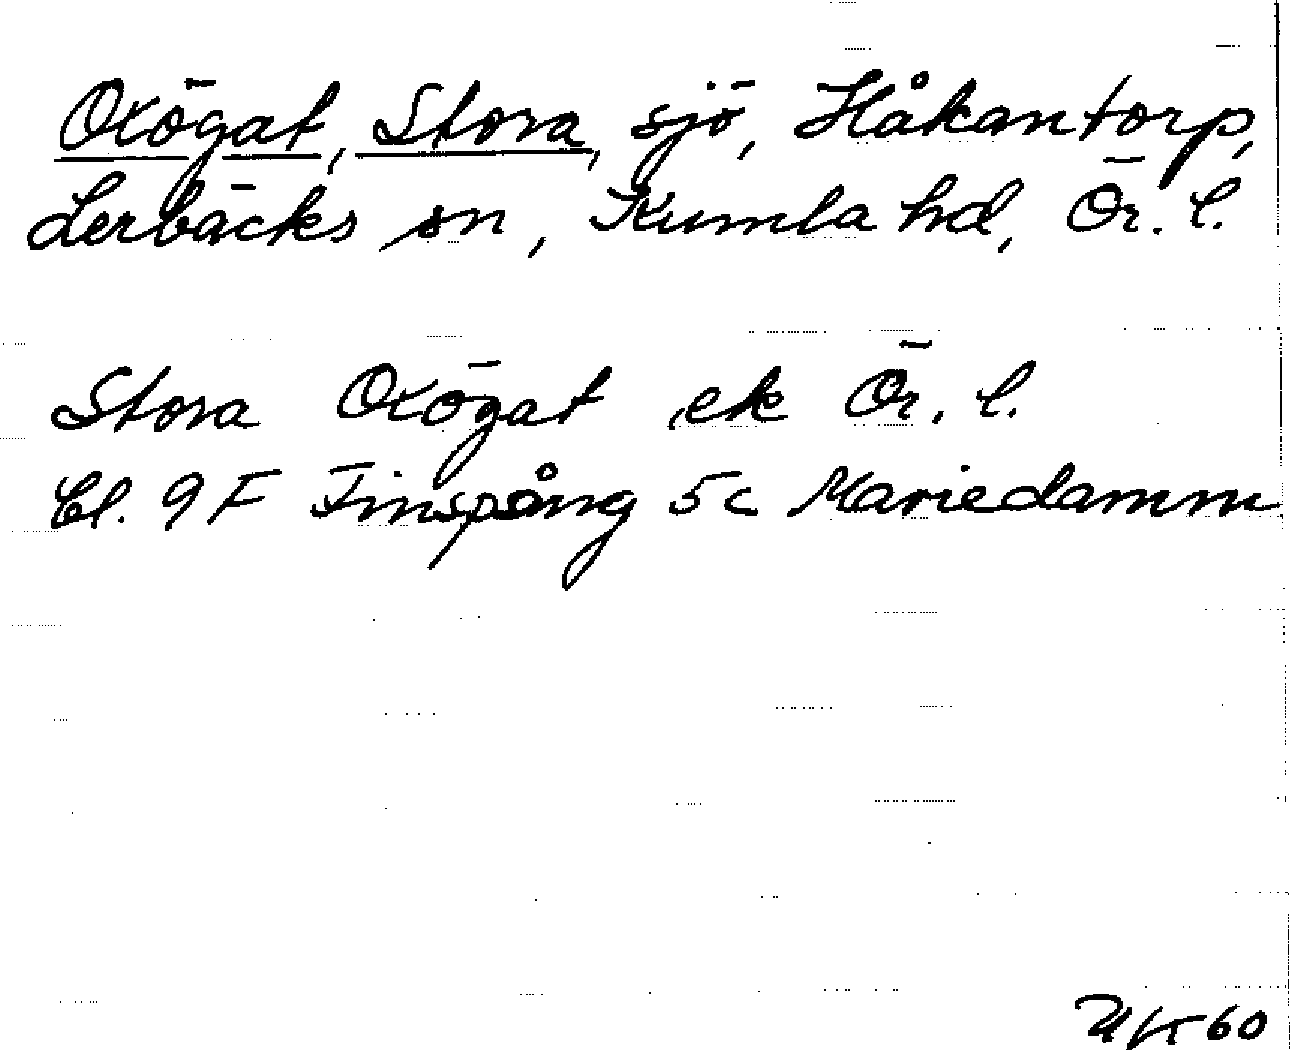 Oxögat, Stora, sjö, Håkantorp,
Lerbäcks sn, Kumla hd, Ör. l.
Stora Oxögat ek Ör. l.
Bl. 9F Finspång 5c Mariedamm
60